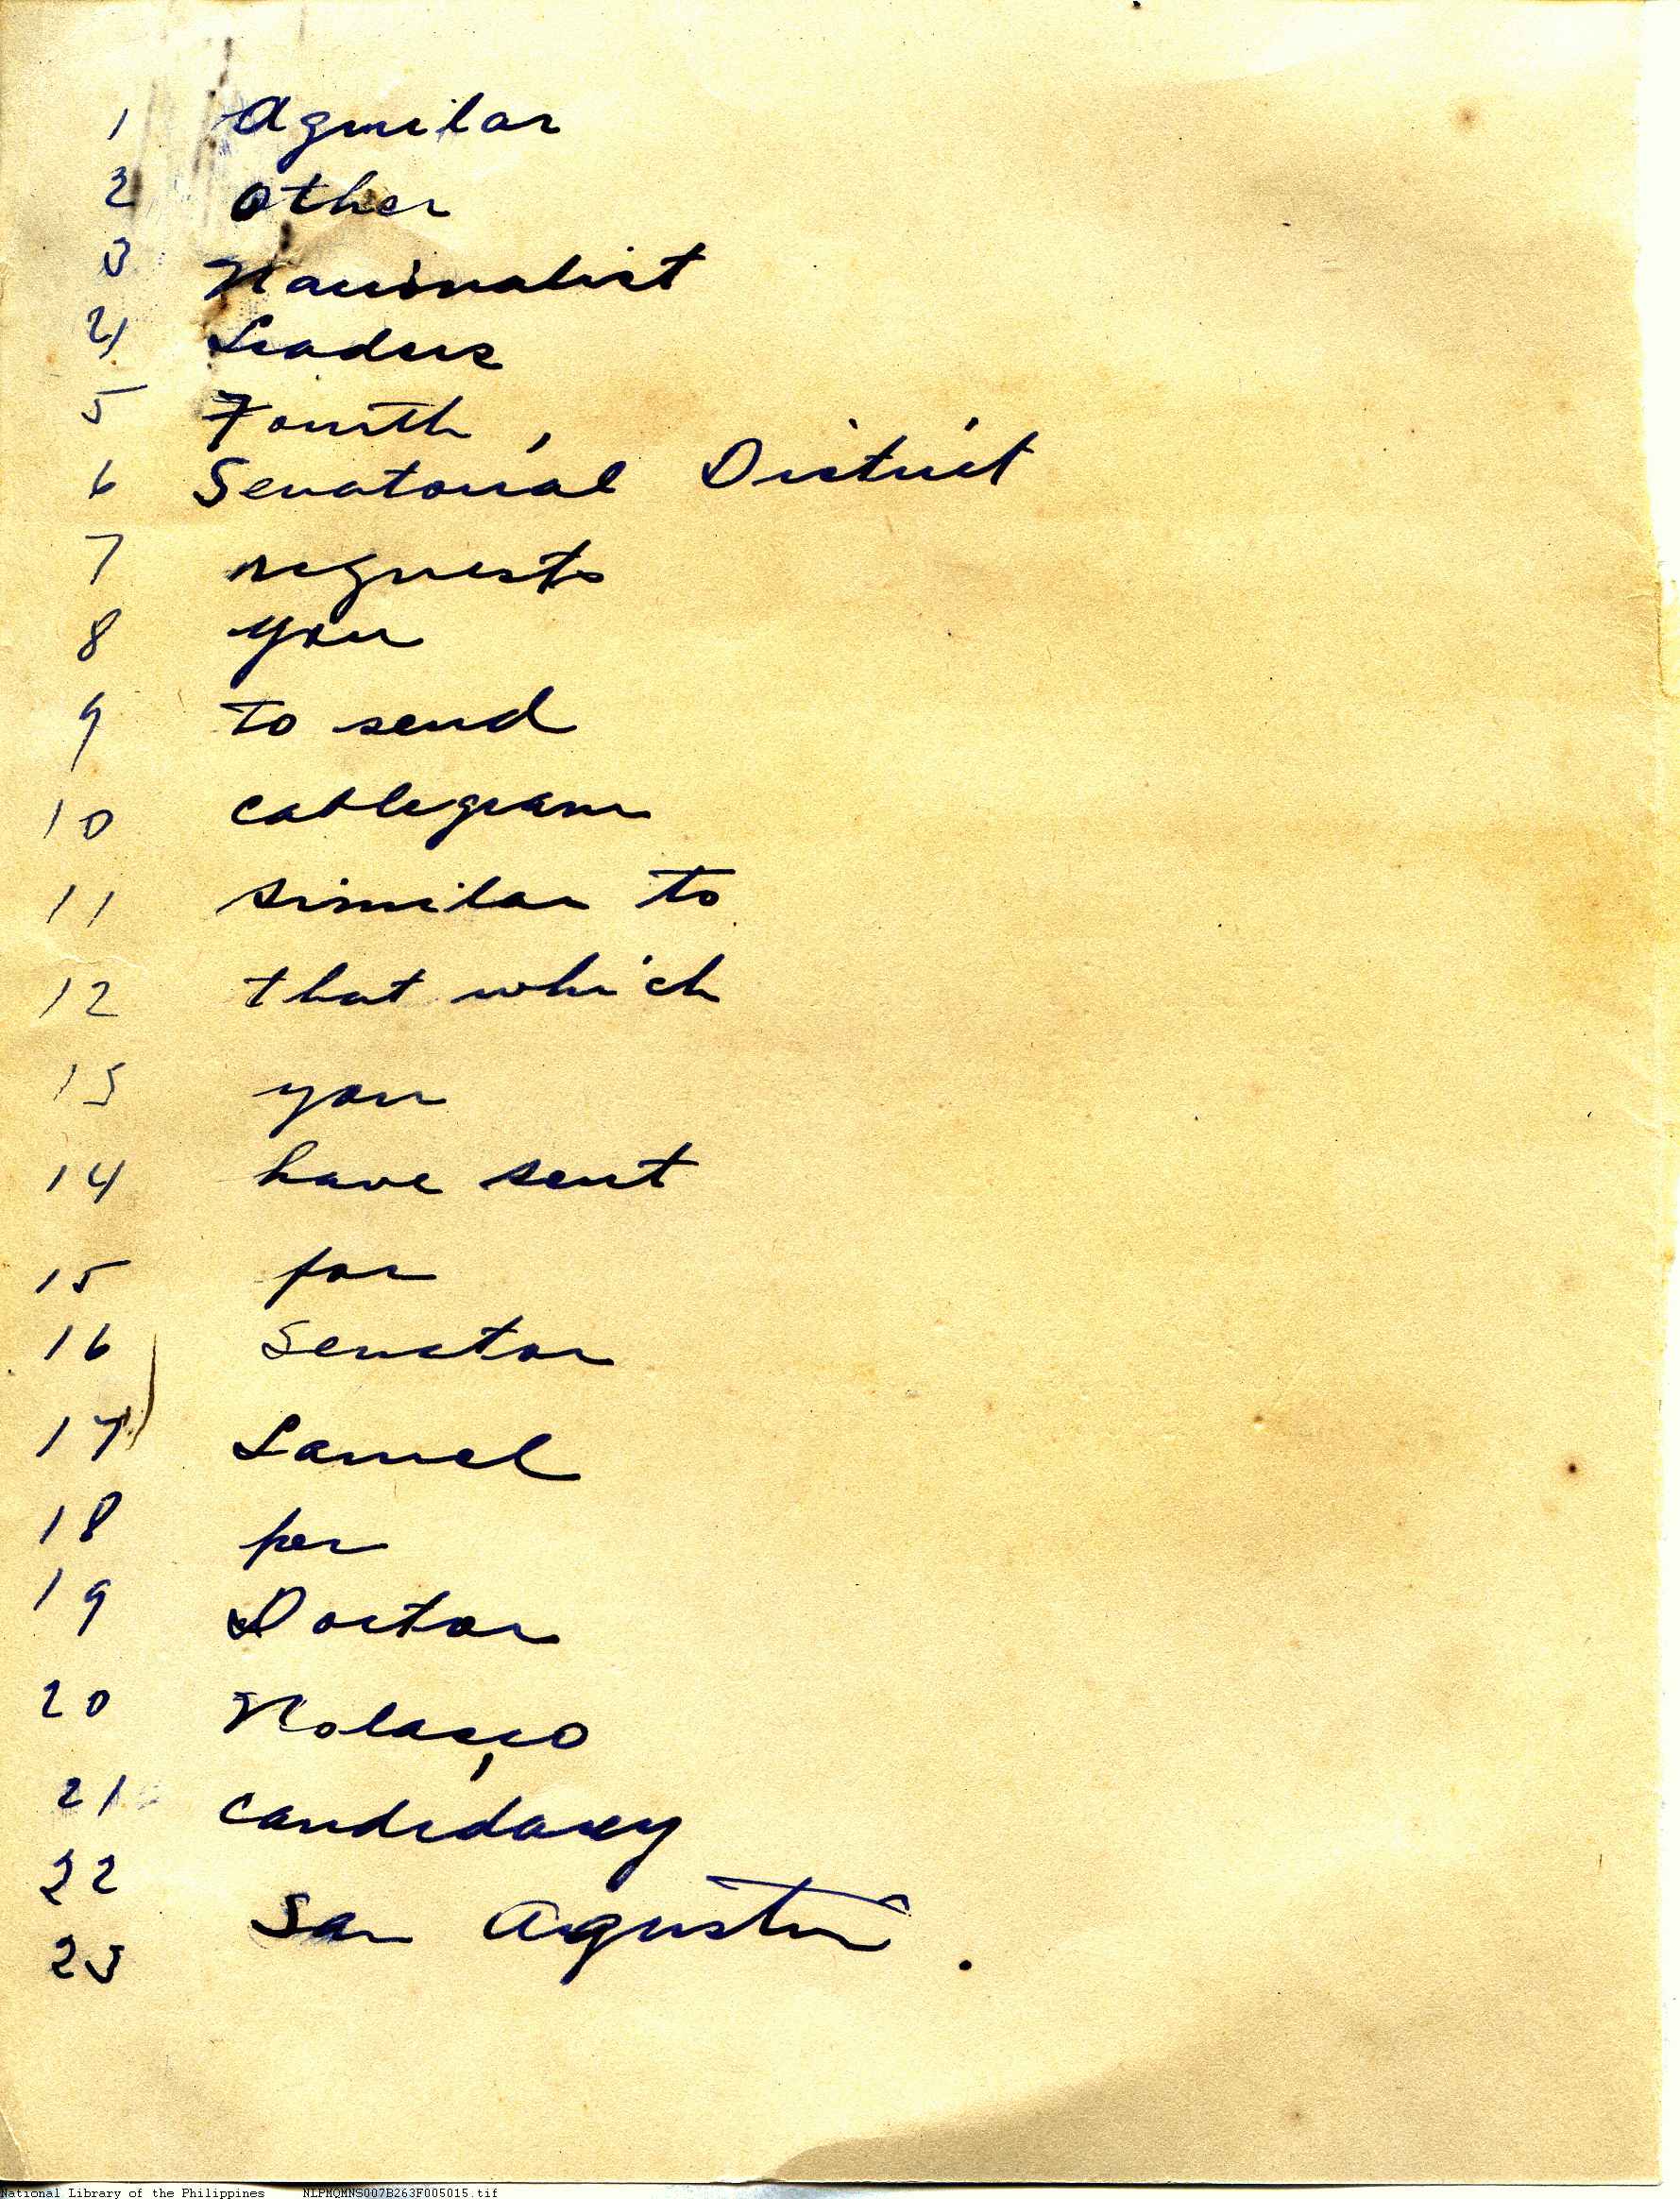 1 Aguilar
2 other
3 Nacionalist
4 Leaders
5 Fourth,
6 Senatorial District
7 requests
8 you
9 to send
10 cablegram
11 similar to
12 that which
13 you
14 have sent
15 for
16 Senator
17 Laurel
18 for
19 Doctor
20 Nolasco
21 candidacy
22 San Agustin.
23
National Library of the Philippines NLPMQMNS007B263F005015.tif